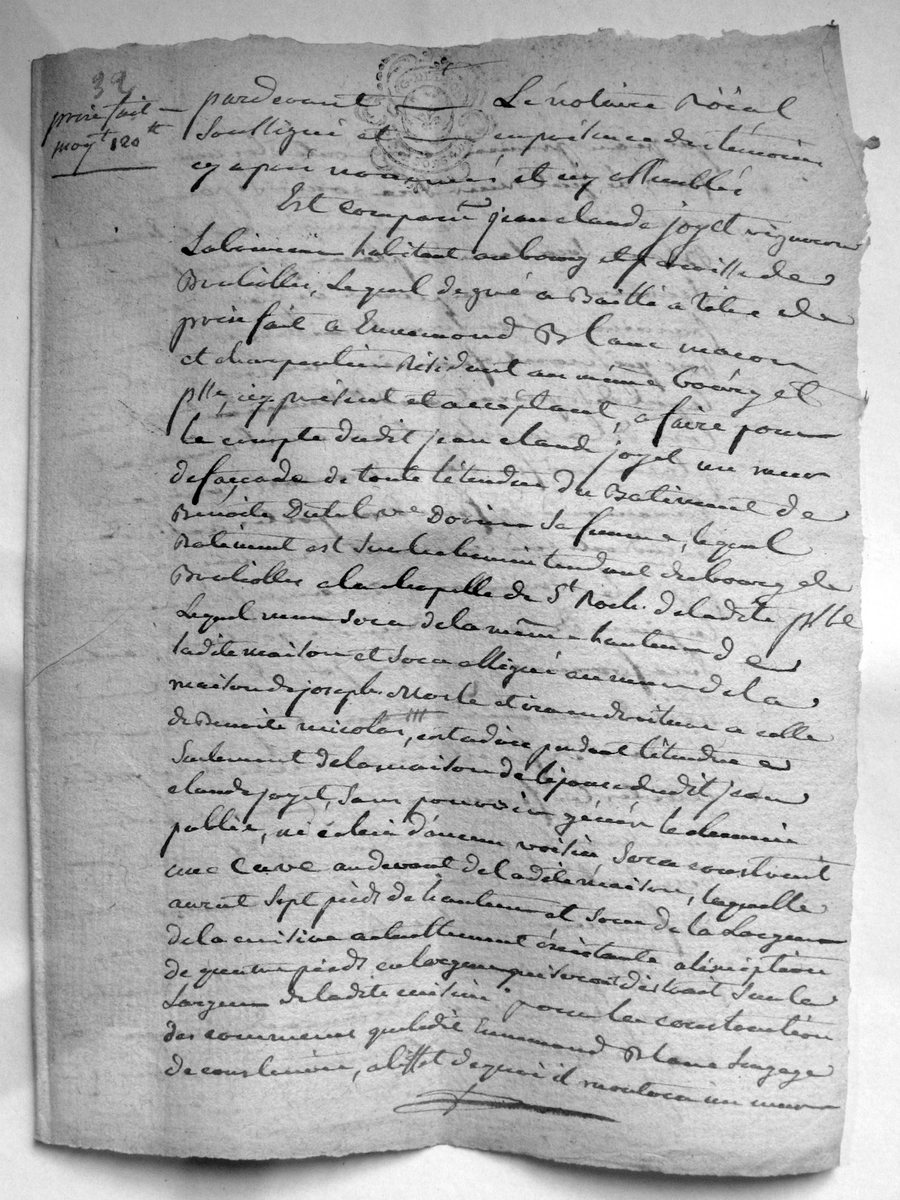 32
prix fait
moy.t 120 tt
pardevant Le notaire Röial
Soussigné et en présence des témoins
cy apres nommés et
Est comparu jean claude joyet vigneron
habitant au bourg et paroisse de
Brulliolles, Lequel de gré a Baillé a titre de
prix fait a Ennemond Blanc macon
et charpentier Résident au même bourg et
psse, icy présent et acceptant, a faire pour
le compte dudit jean claude joyet un mur
de façcade de toute létendue du Batiment de
Benoite sa femme, lequel
Batiment est sur le chemin tendant du bourg de
Brulliolles a la chapelle de St Roch de ladite psse
Lequel mur sera de la même hauteur de
ladite maison et sera alligné au mur de la
maison de joseph et ira en droiture a celle
de Benoite nicolas, cest a dire pendant létendue
Seulement de la maison de lépouse dudit jean
claude joyet, Sans pouvoir géner le chemin
public, ni celui d'aucun voisin Sera construit
une Cave au devant de ladite maison, laquelle
aurat Sept pieds de hauteur et Sera de la Largeur
de la cuisine actuellement éxistante a léxception
de quatre pieds en largeur qui seront distrait Sur la
Largeur de ladite cuisine. pour la construction
des que ledit Ennemond Blanc Sengage
de construire, a leffet de quoi il montera un mur